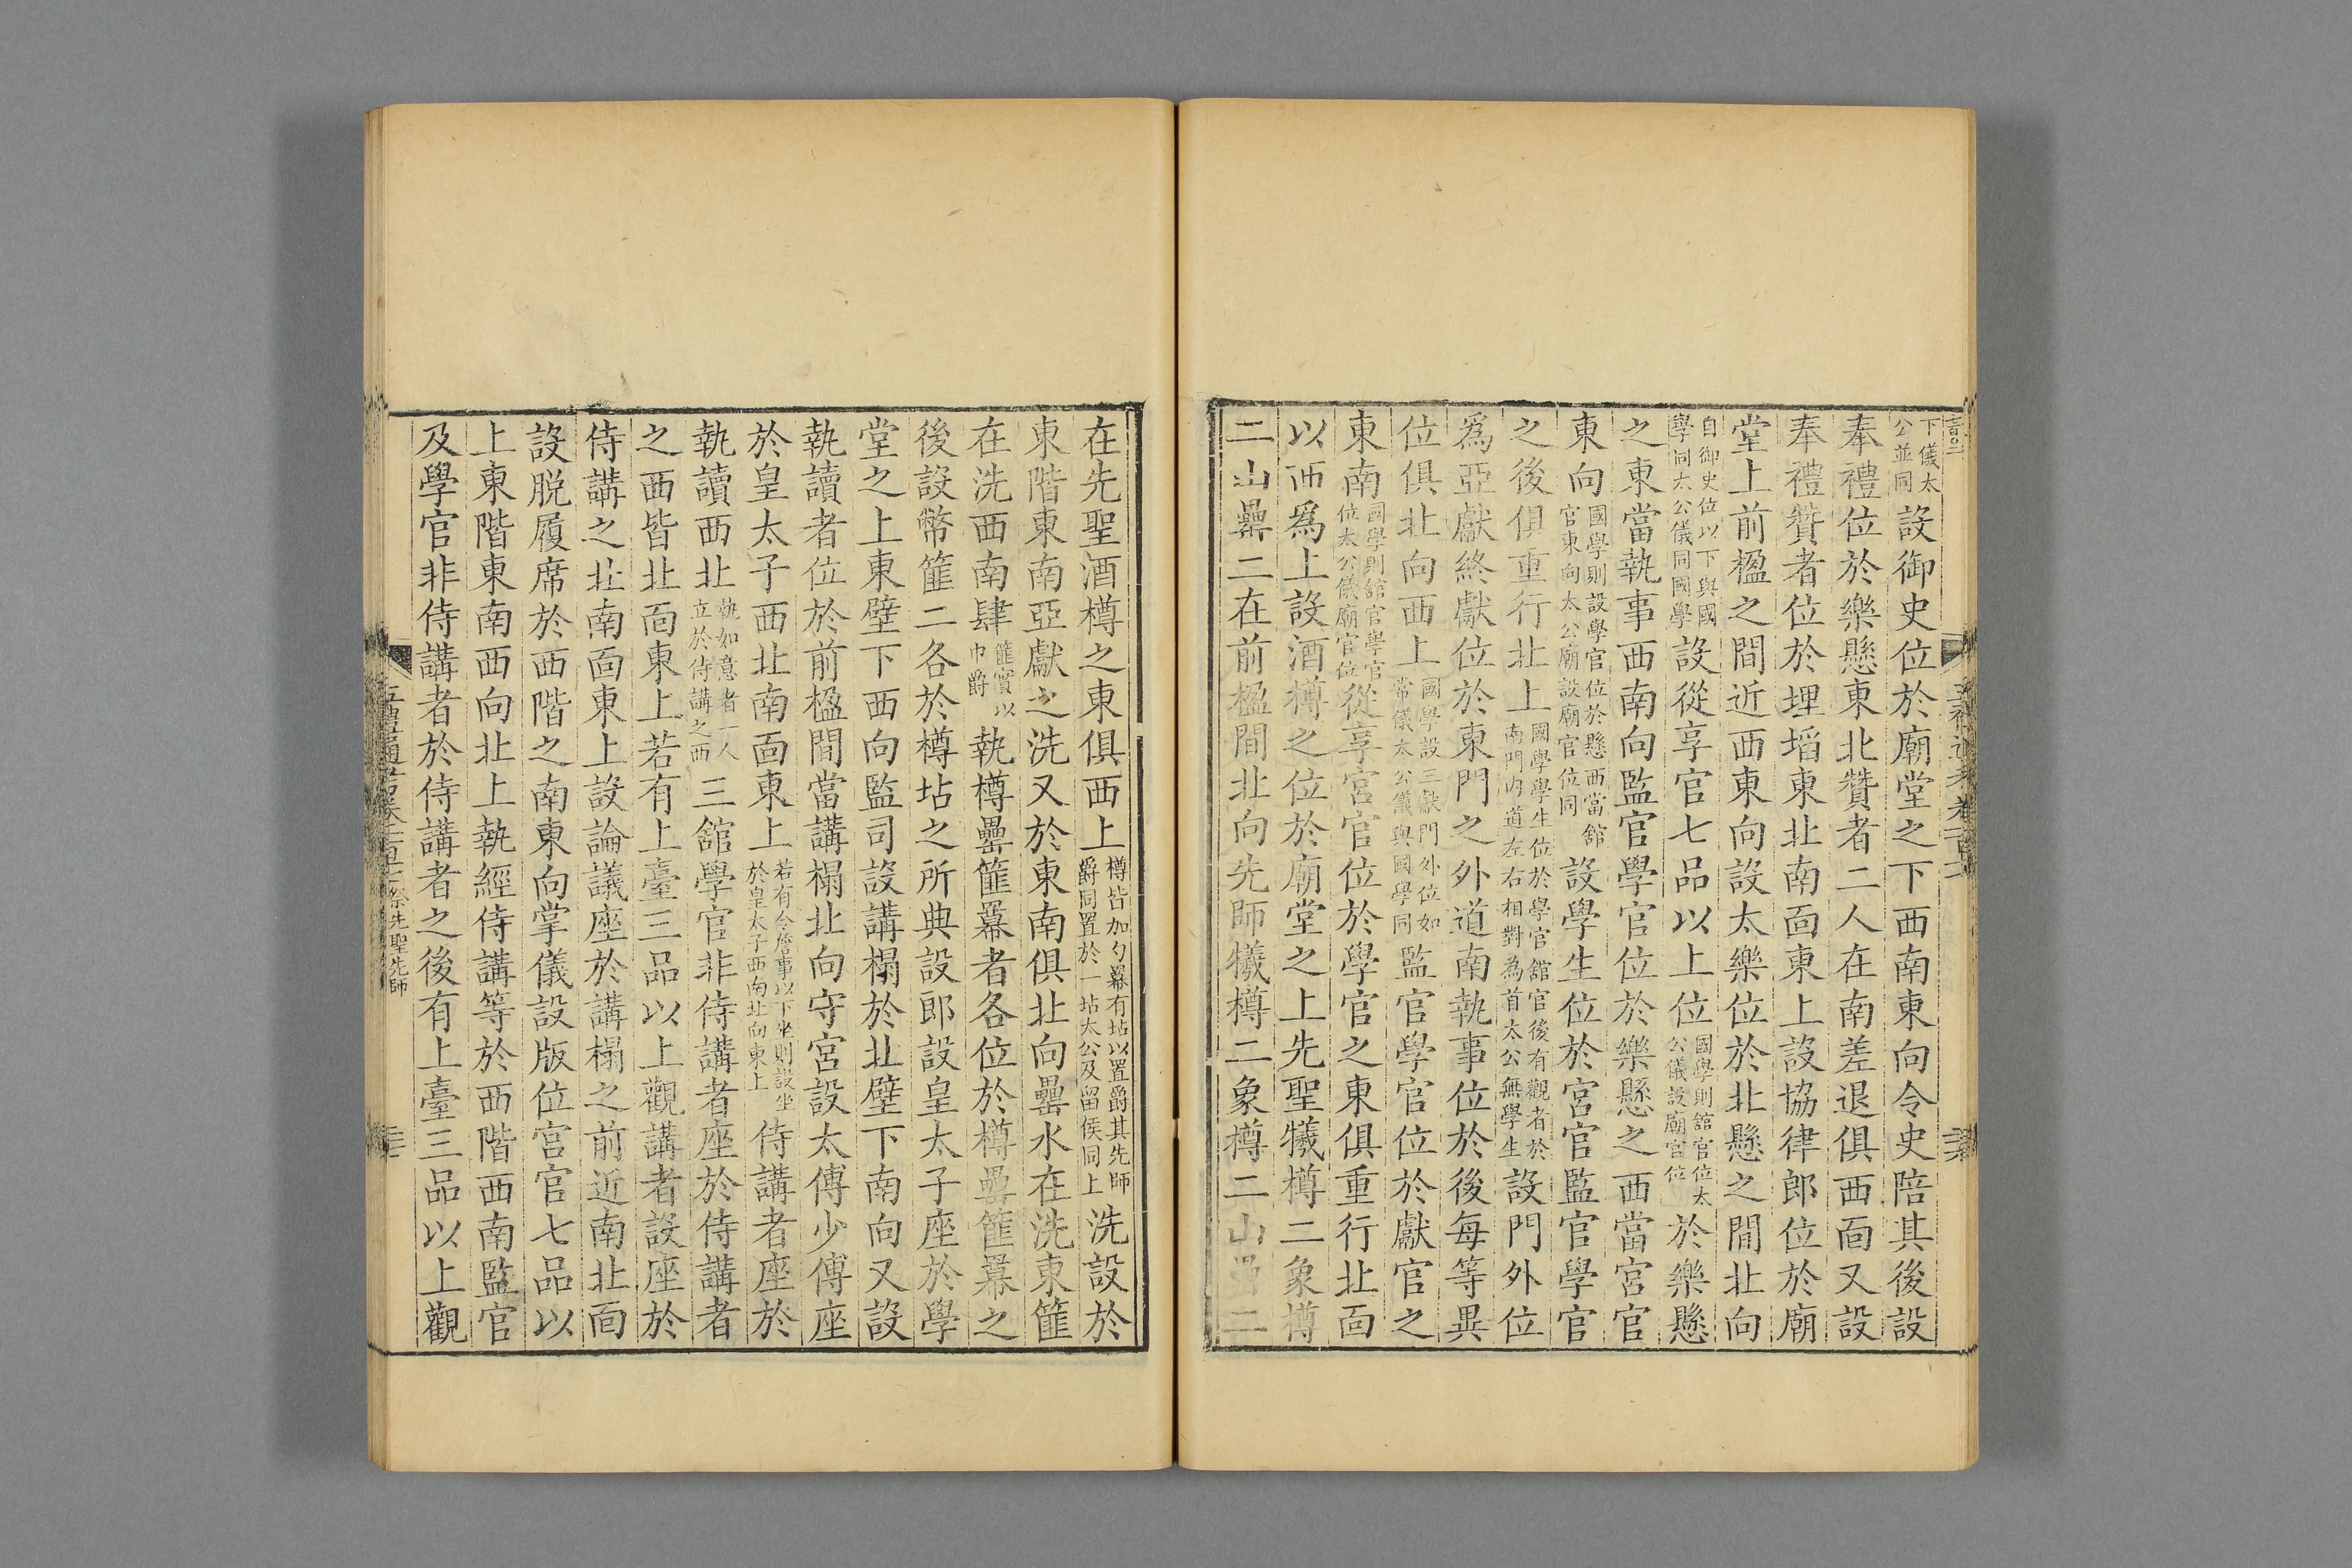 下儀太公並同設御史位於廟堂之下西南東向令史陪其後設
奉禮位於樂懸東北贊者二人在南差退俱西面又設
奉禮贊者位於埋塪東北南面東上設協律郎位於廟
堂上前楹之間近西東向設太樂位於北懸之間北向
自御史位以下與國學同太公儀同國學設從享官七品以上位國學則館官位太公儀設廟官位於樂懸
之東當執事西南向監官學官位於樂懸之西當宮官
東向國學則設學官位於懸西當館官東向太公廟設廟官位同設學生位於宮官監官學官
之後俱重行北上國學學生位於學官館官後有觀者於南門內道左右相對為首太公無學生設門外位
爲亞獻終獻位於東門之外道南執事位於後每等異
位俱北向西上國學設三獻門外位如常儀太公儀與國學同監官學官位於獻官之
東南國學則館官學官位太公儀廟官位從享宮官位於學官之東俱重行北面
以西爲上設酒樽之位於廟堂之上先聖犧樽二象樽
二山罍二在前楹間北向先師犧樽二象樽二山罍二
在先聖酒樽之東俱西上樽皆加勺羃有坫以置爵其先師爵同置於一坫太公及留侯同上洗設於
東階東南亞獻之洗又於東南俱北向罍水在洗東篚
在洗西南肆篚實以巾爵執樽罍篚羃者各位於樽罍篚羃之
後設幣篚二各於樽坫之所典設郎設皇太子座於學
堂之上東壁下西向監司設講榻於北壁下南向又設
執讀者位於前楹間當講榻北向守宮設太傅少傅座
於皇太子西北南面東上若有令詹事以下坐則設坐於皇太子西南北向東上侍講者座於
執讀西北執如意者一人立於侍講之西三館學官非侍講者座於侍講者
之西皆北面東上若有上臺三品以上觀講者設座於
侍講之北南面東上設論議座於講榻之前近南北面
設脫履席於西階之南東向掌儀設版位宮官七品以
上東階東南西向北上執經侍講等於西階西南監官
及學官非侍講者於侍講者之後有上臺三品以上觀
五禮通考卷一百十七 祭先聖先師